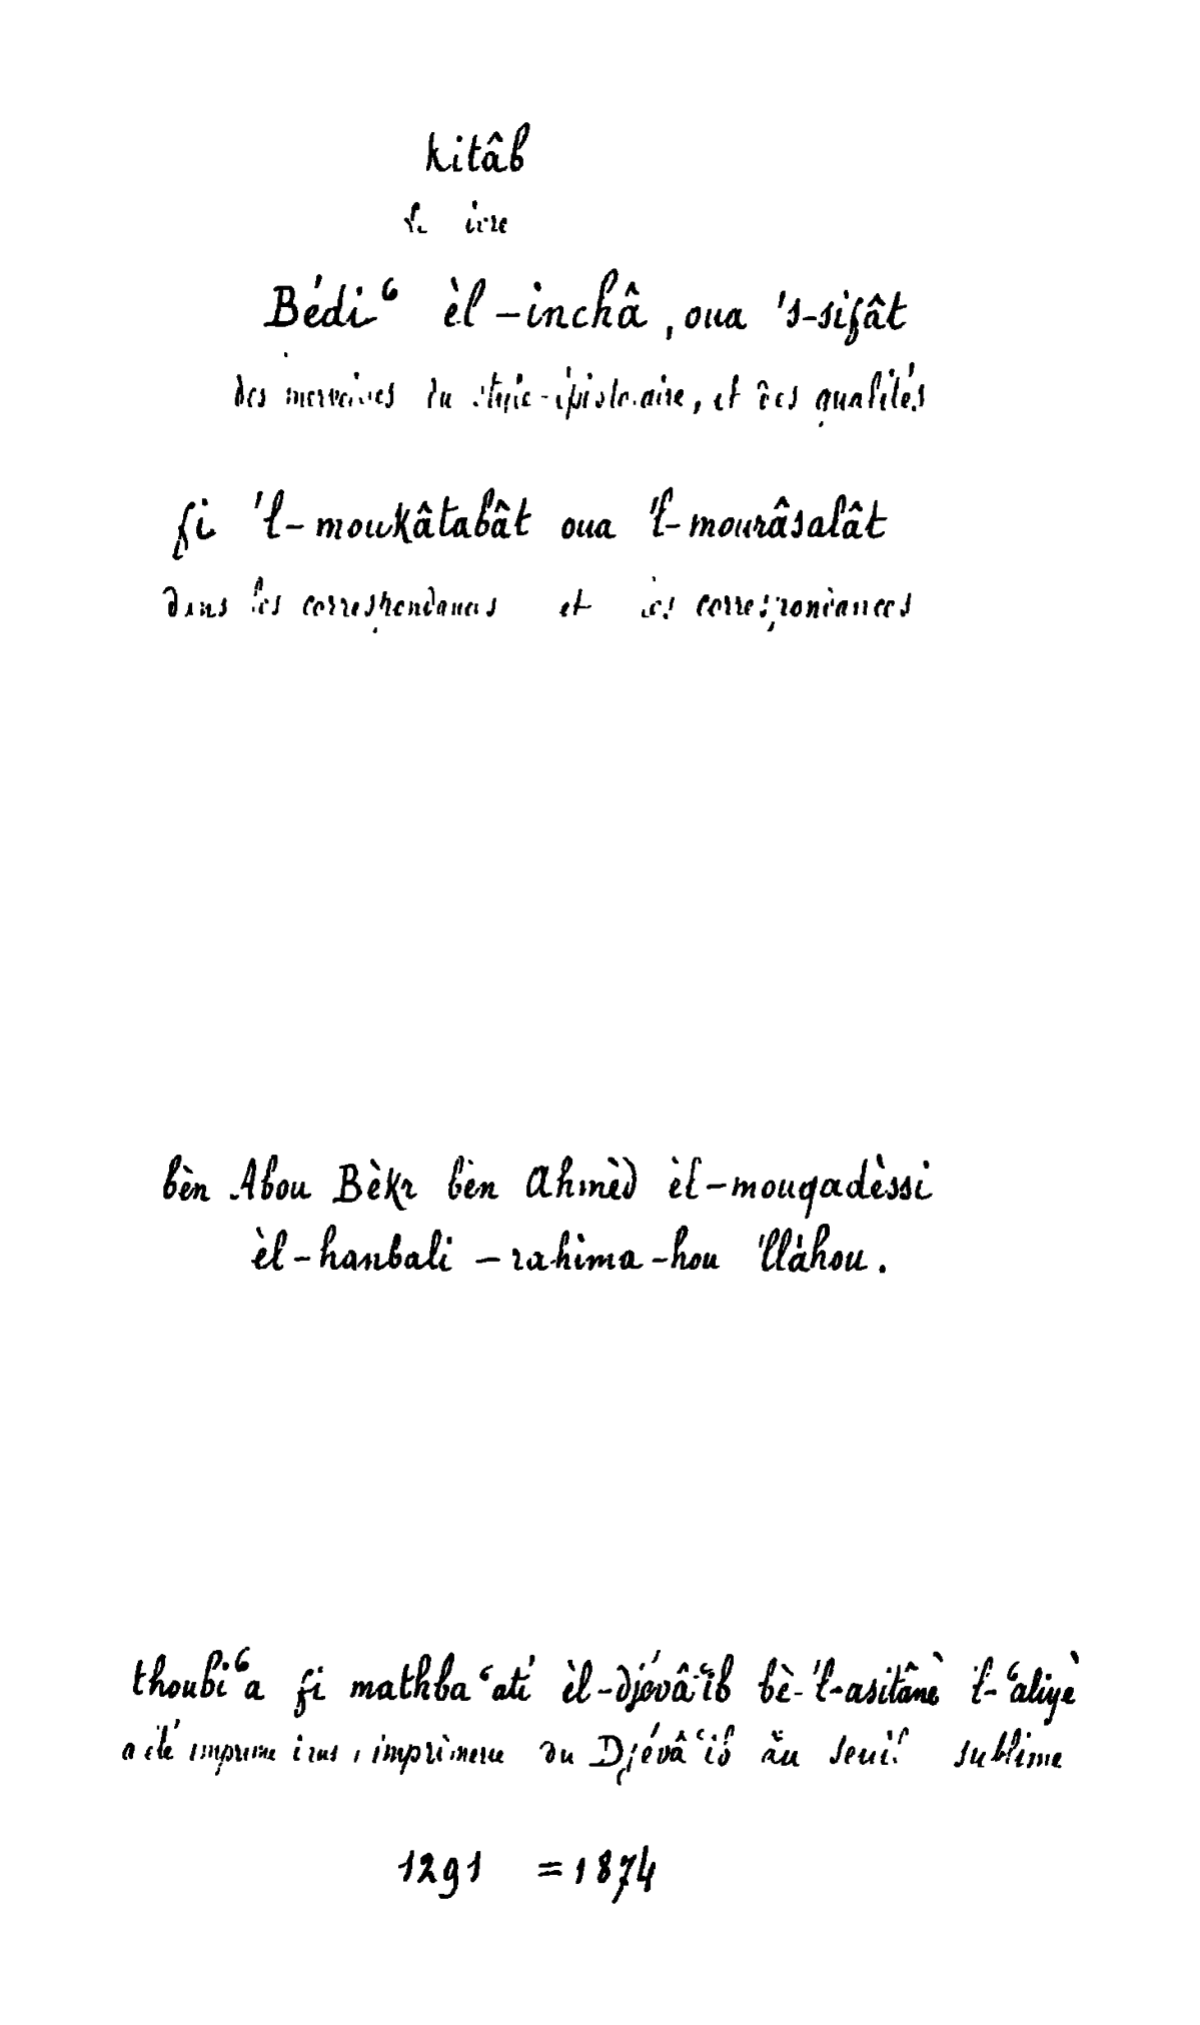 Kitâb
le livre
Bédi‘ èl-inchâ, oua 's-sifât
des merveilles du style-épistolaire, et des qualités
fi 'l-moukâtabât oua 'l-mourâsalât
dans les correspondances et les correspondances
bèn Abou Bèkr bèn Ahmèd èl-mouqadèssi
èl-hanbali - rahima-hou 'llâhou.
thoubi‘a fi mathba‘ati èl-djévâ‘ib bè-'l-asitânè 'l-‘aliyè
a été imprimé dans l'imprimerie du Djévâ‘ib au seuil sublime
1291 = 1874